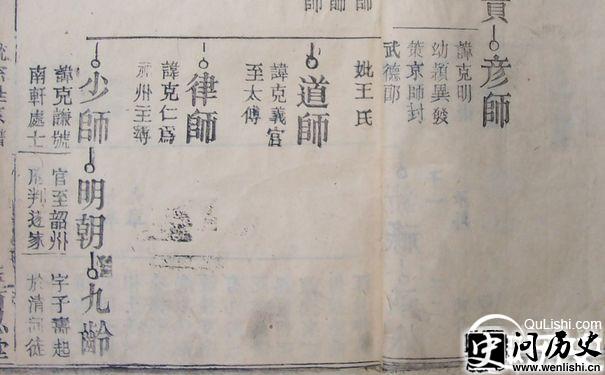 彥師
諱克明
幼穎異發
策京師封
武德郎
妣王氏
師
師
道師
諱克義官
至太傅
律師
諱克仁為
州主
少師
諱克謙號
南軒處士
明朝
官至韶州
判遂家
九齡
字子壽起
於清河徒
堂
QuLishi.com
史问历史
www.wenlishi.cn